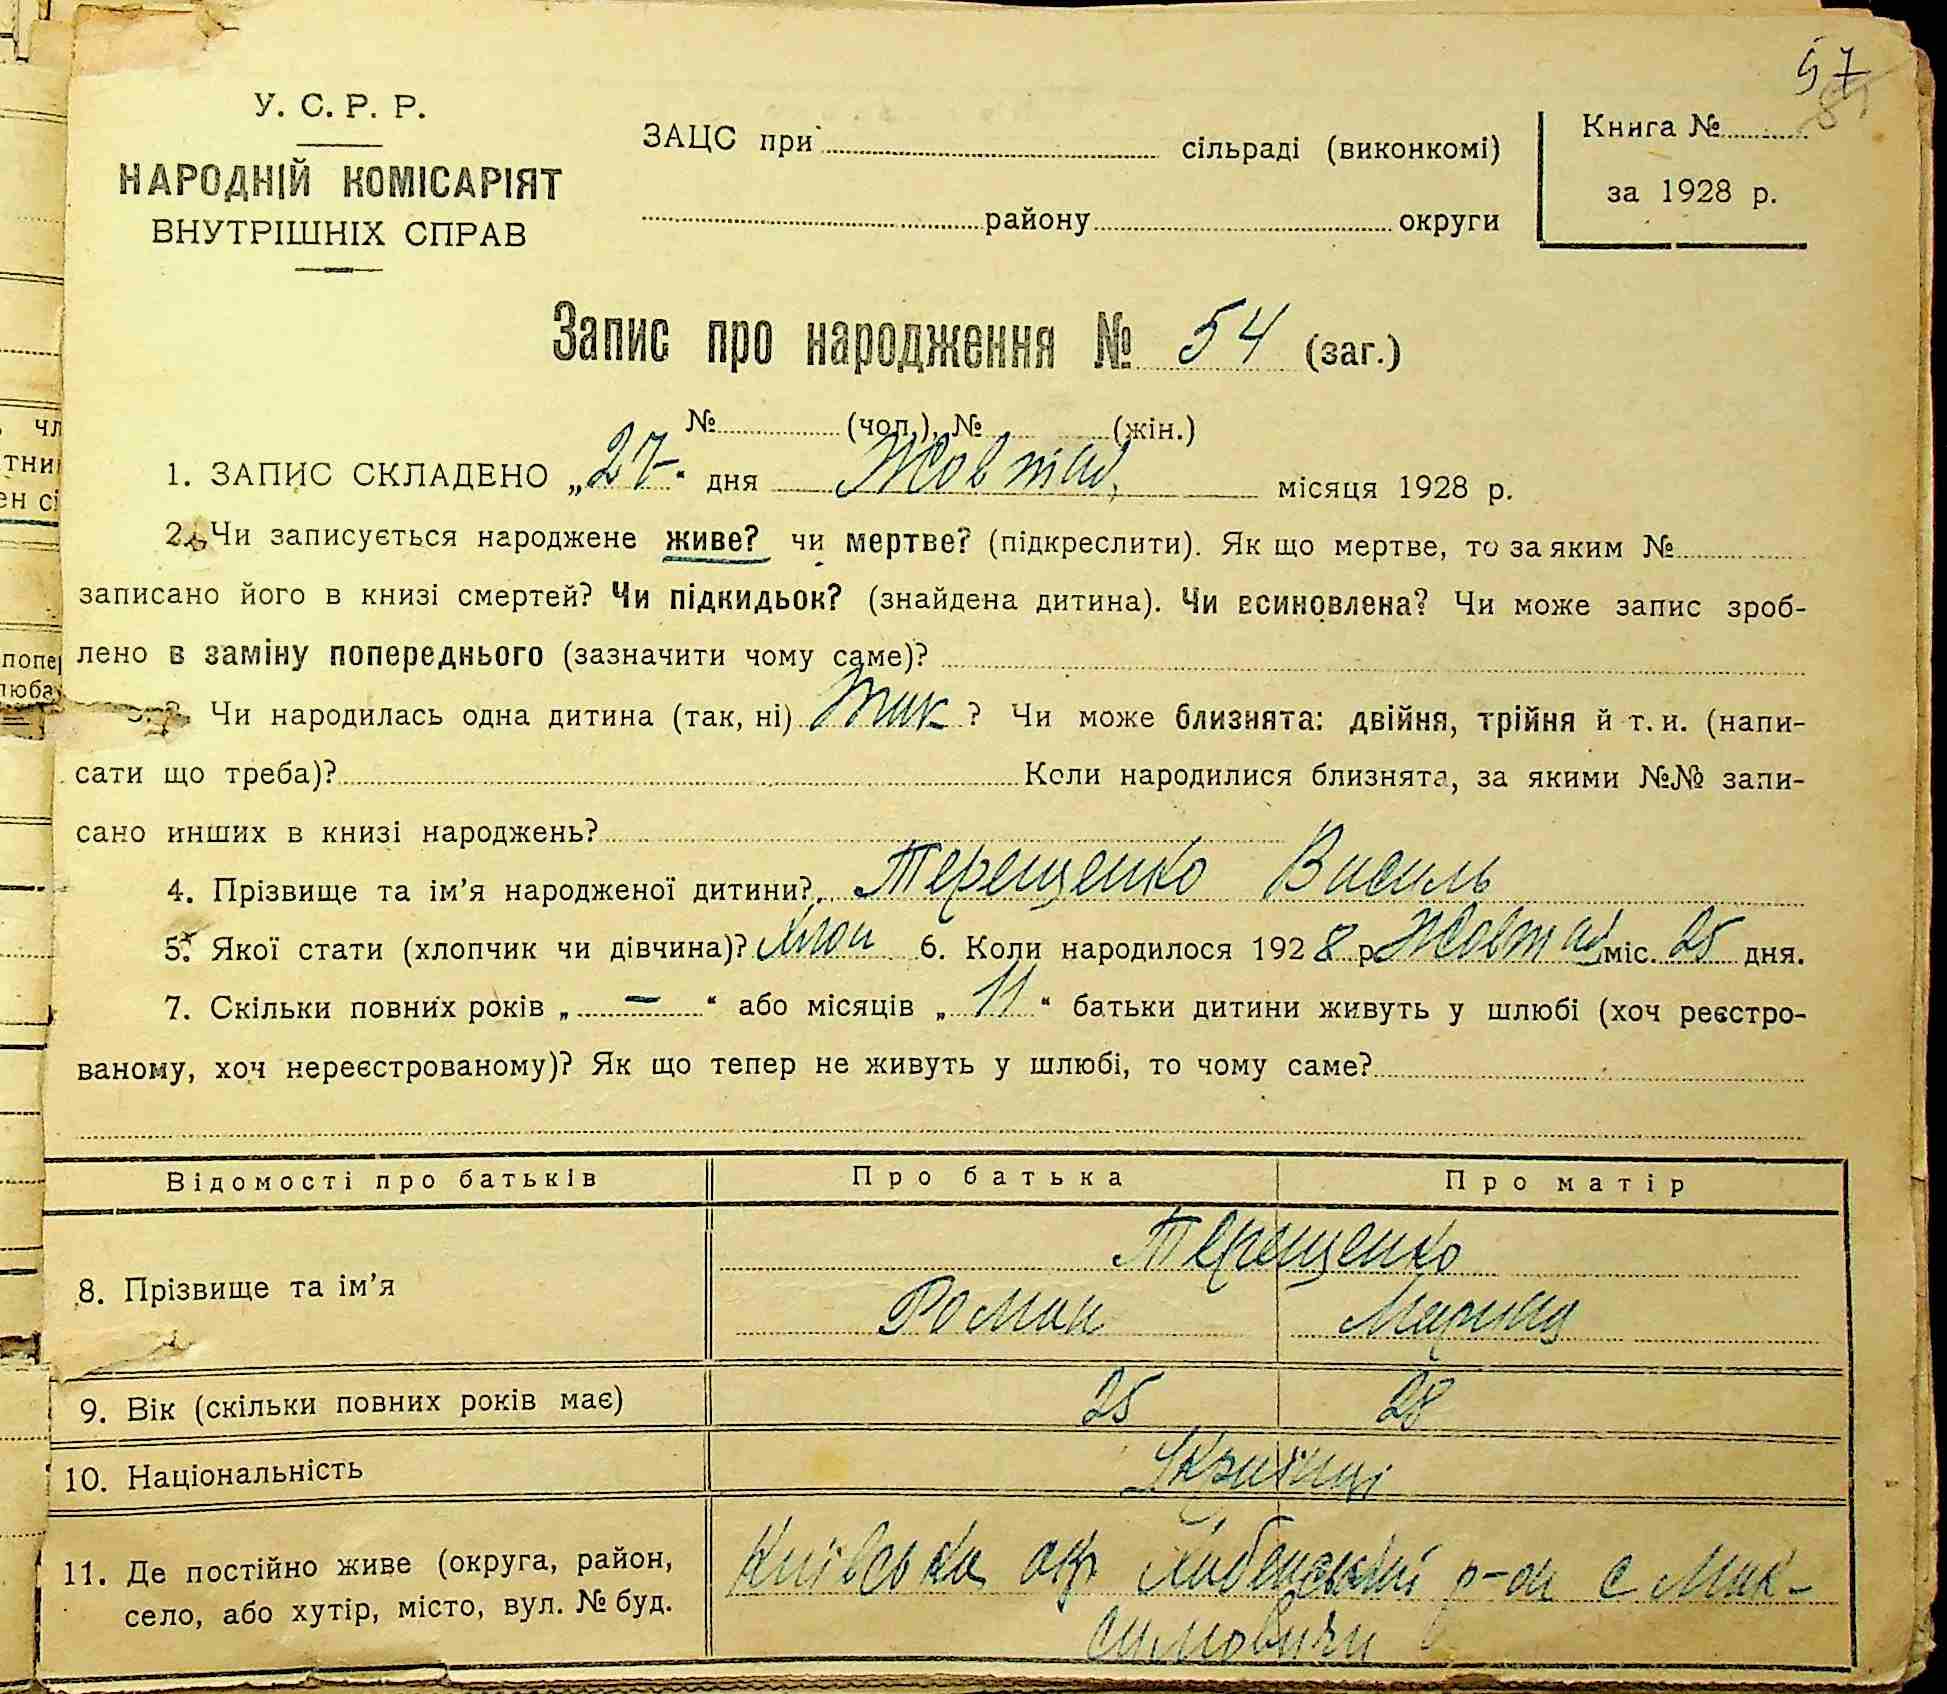 57
У. С. Р. Р.
НАРОДНІЙ КОМІСАРІЯТ
ВНУТРІШНІХ СПРАВ
ЗАЦС при сільраді (виконкомі)
району округи
Книга №
за 1928 р.
Запис про народження № 54 (заг.)
№ (чол.), № (жін.)
1. ЗАПИС СКЛАДЕНО „27“ дня Жовтня місяця 1928 р.
2. Чи записується народжене живе? чи мертве? (підкреслити). Як що мертве, то за яким №
записано його в книзі смертей? Чи підкидьок? (знайдена дитина). Чи всиновлена? Чи може запис зроб-
лено в заміну попереднього (зазначити чому саме)?
3. Чи народилась одна дитина (так, ні) так ? Чи може близнята: двійня, трійня й т. и. (напи-
сати що треба)? Коли народилися близнята, за якими №№ запи-
сано инших в книзі народжень?
4. Прізвище та ім’я народженої дитини? Терещенко Василь
5. Якої стати (хлопчик чи дівчина)? Хлоп 6. Коли народилося 1928 р. Жовтня міс. 25 дня.
7. Скільки повних років „ — “ або місяців „ 11 “ батьки дитини живуть у шлюбі (хоч реєстро-
ваному, хоч нереєстрованому)? Як що тепер не живуть у шлюбі, то чому саме?
Відомості про батьків Про батька Про матір
Терещенко
8. Прізвище та ім’я Роман Марина
9. Вік (скільки повних років має) 25 28
10. Національність Українці
11. Де постійно живе (округа, район, Київська окр. р-он с Мак-
село, або хутір, місто, вул. № буд. симовичи